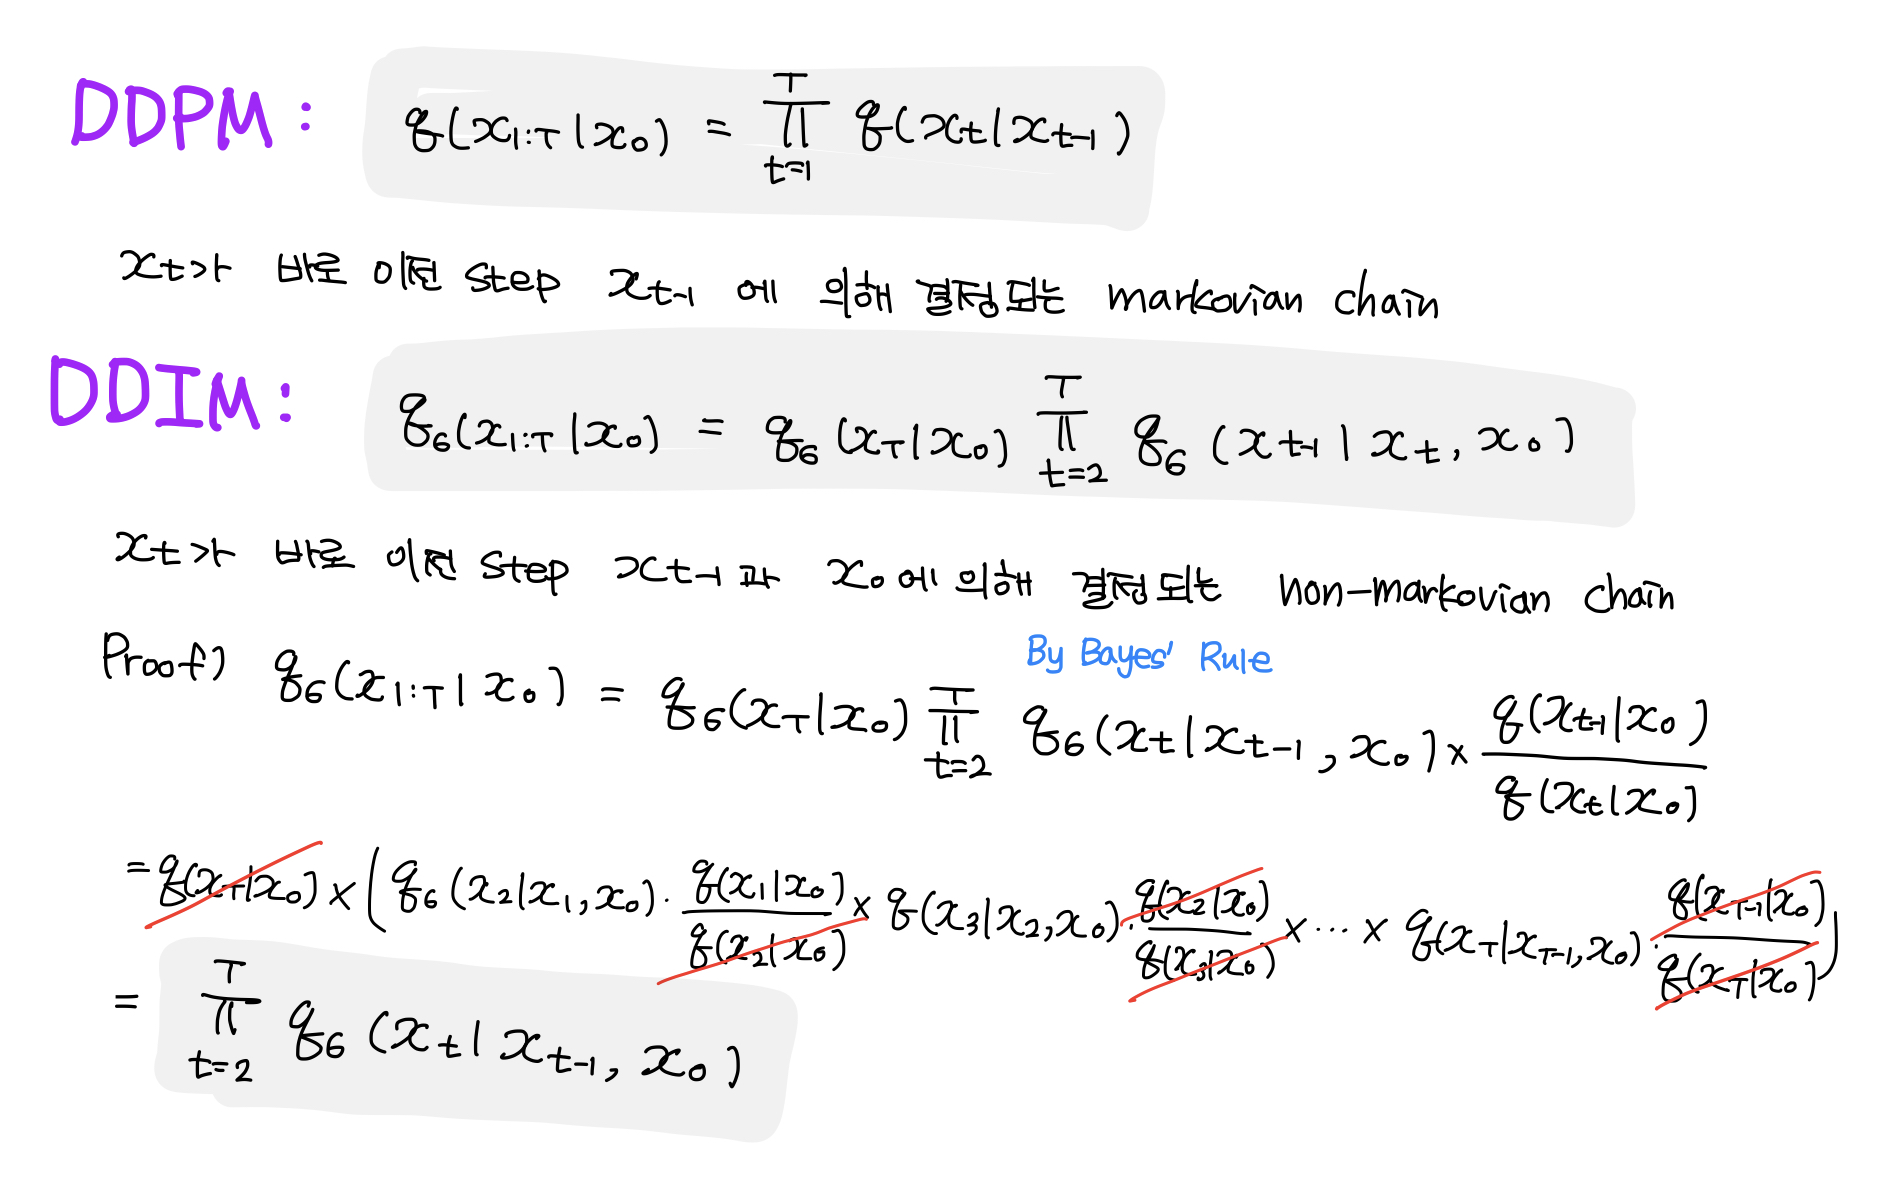 DDPM: q(x₁:T|x₀) = ∏_{t=1}^{T} q(xt|xt-1)
xt가 바로 이전 step xt-1 에 의해 결정되는 markovian chain
DDIM: q6(x₁:T|x₀) = q6(xT|x₀) ∏_{t=2}^{T} q6(xt-1|xt, x₀)
xt가 바로 이전 step xt-1과 x₀에 의해 결정되는 non-markovian chain
By Bayes' Rule
Proof) q6(x₁:T|x₀) = q6(xT|x₀) ∏_{t=2}^{T} q6(xt|xt-1, x₀) × q(xt-1|x₀)/q(xt|x₀)
= q(xT|x₀) × (q6(x₂|x₁,x₀) · q(x₁|x₀)/q(x₂|x₀) × q(x₃|x₂,x₀) · q(x₂|x₀)/q(x₃|x₀) × ⋯ × q(xT|xT-1,x₀) · q(xT-1|x₀)/q(xT|x₀))
= ∏_{t=2}^{T} q6(xt|xt-1, x₀)